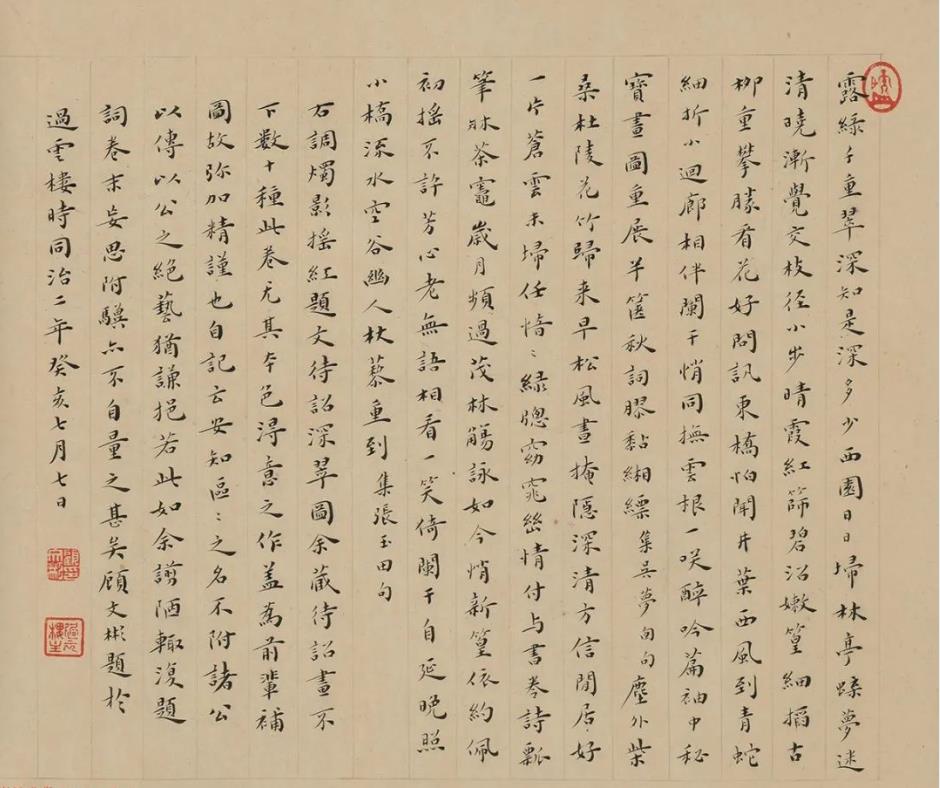 露綠千重翠深知是深多少西園日日埽林亭蝶夢迷
清曉漸覺交枝徑小步晴霞紅篩碧沼嫩篁細搯古
柳重攀勝看花好問訊東橋怕聞井葉西風到青蛇
細折小迴廊相伴闌干悄同撫雲根一咲醉吟篇袖中秘
寶畫圖重展半篋秋詞膠黏緗縹集吳夢囪句塵外柴
桑杜陵花竹歸来早松風晝掩隱深清方信閒居好
一片蒼雲未埽任愔〻綠牕窈窕幽情付与書卷詩瓢
筆牀茶竈歲月頻過茂林觴詠如今悄新篁依約佩
初搖不許芳心老無語相看一笑倚闌干自延晚照
小橋流水空谷幽人杖藜重到集張玉田句
右調燭影搖紅題文待詔深翠圖余藏待詔畫不
下數十種此卷尤其本色淂意之作蓋為前輩補
圖故弥加精謹也自記云安知區〻之名不附諸公
以傳以公之絕藝猶謙挹若此如余譾陋輙湏題
詞卷末妄思附驥亦不自量之甚矣顧文彬題於
過雲樓時同治二年癸亥七月七日